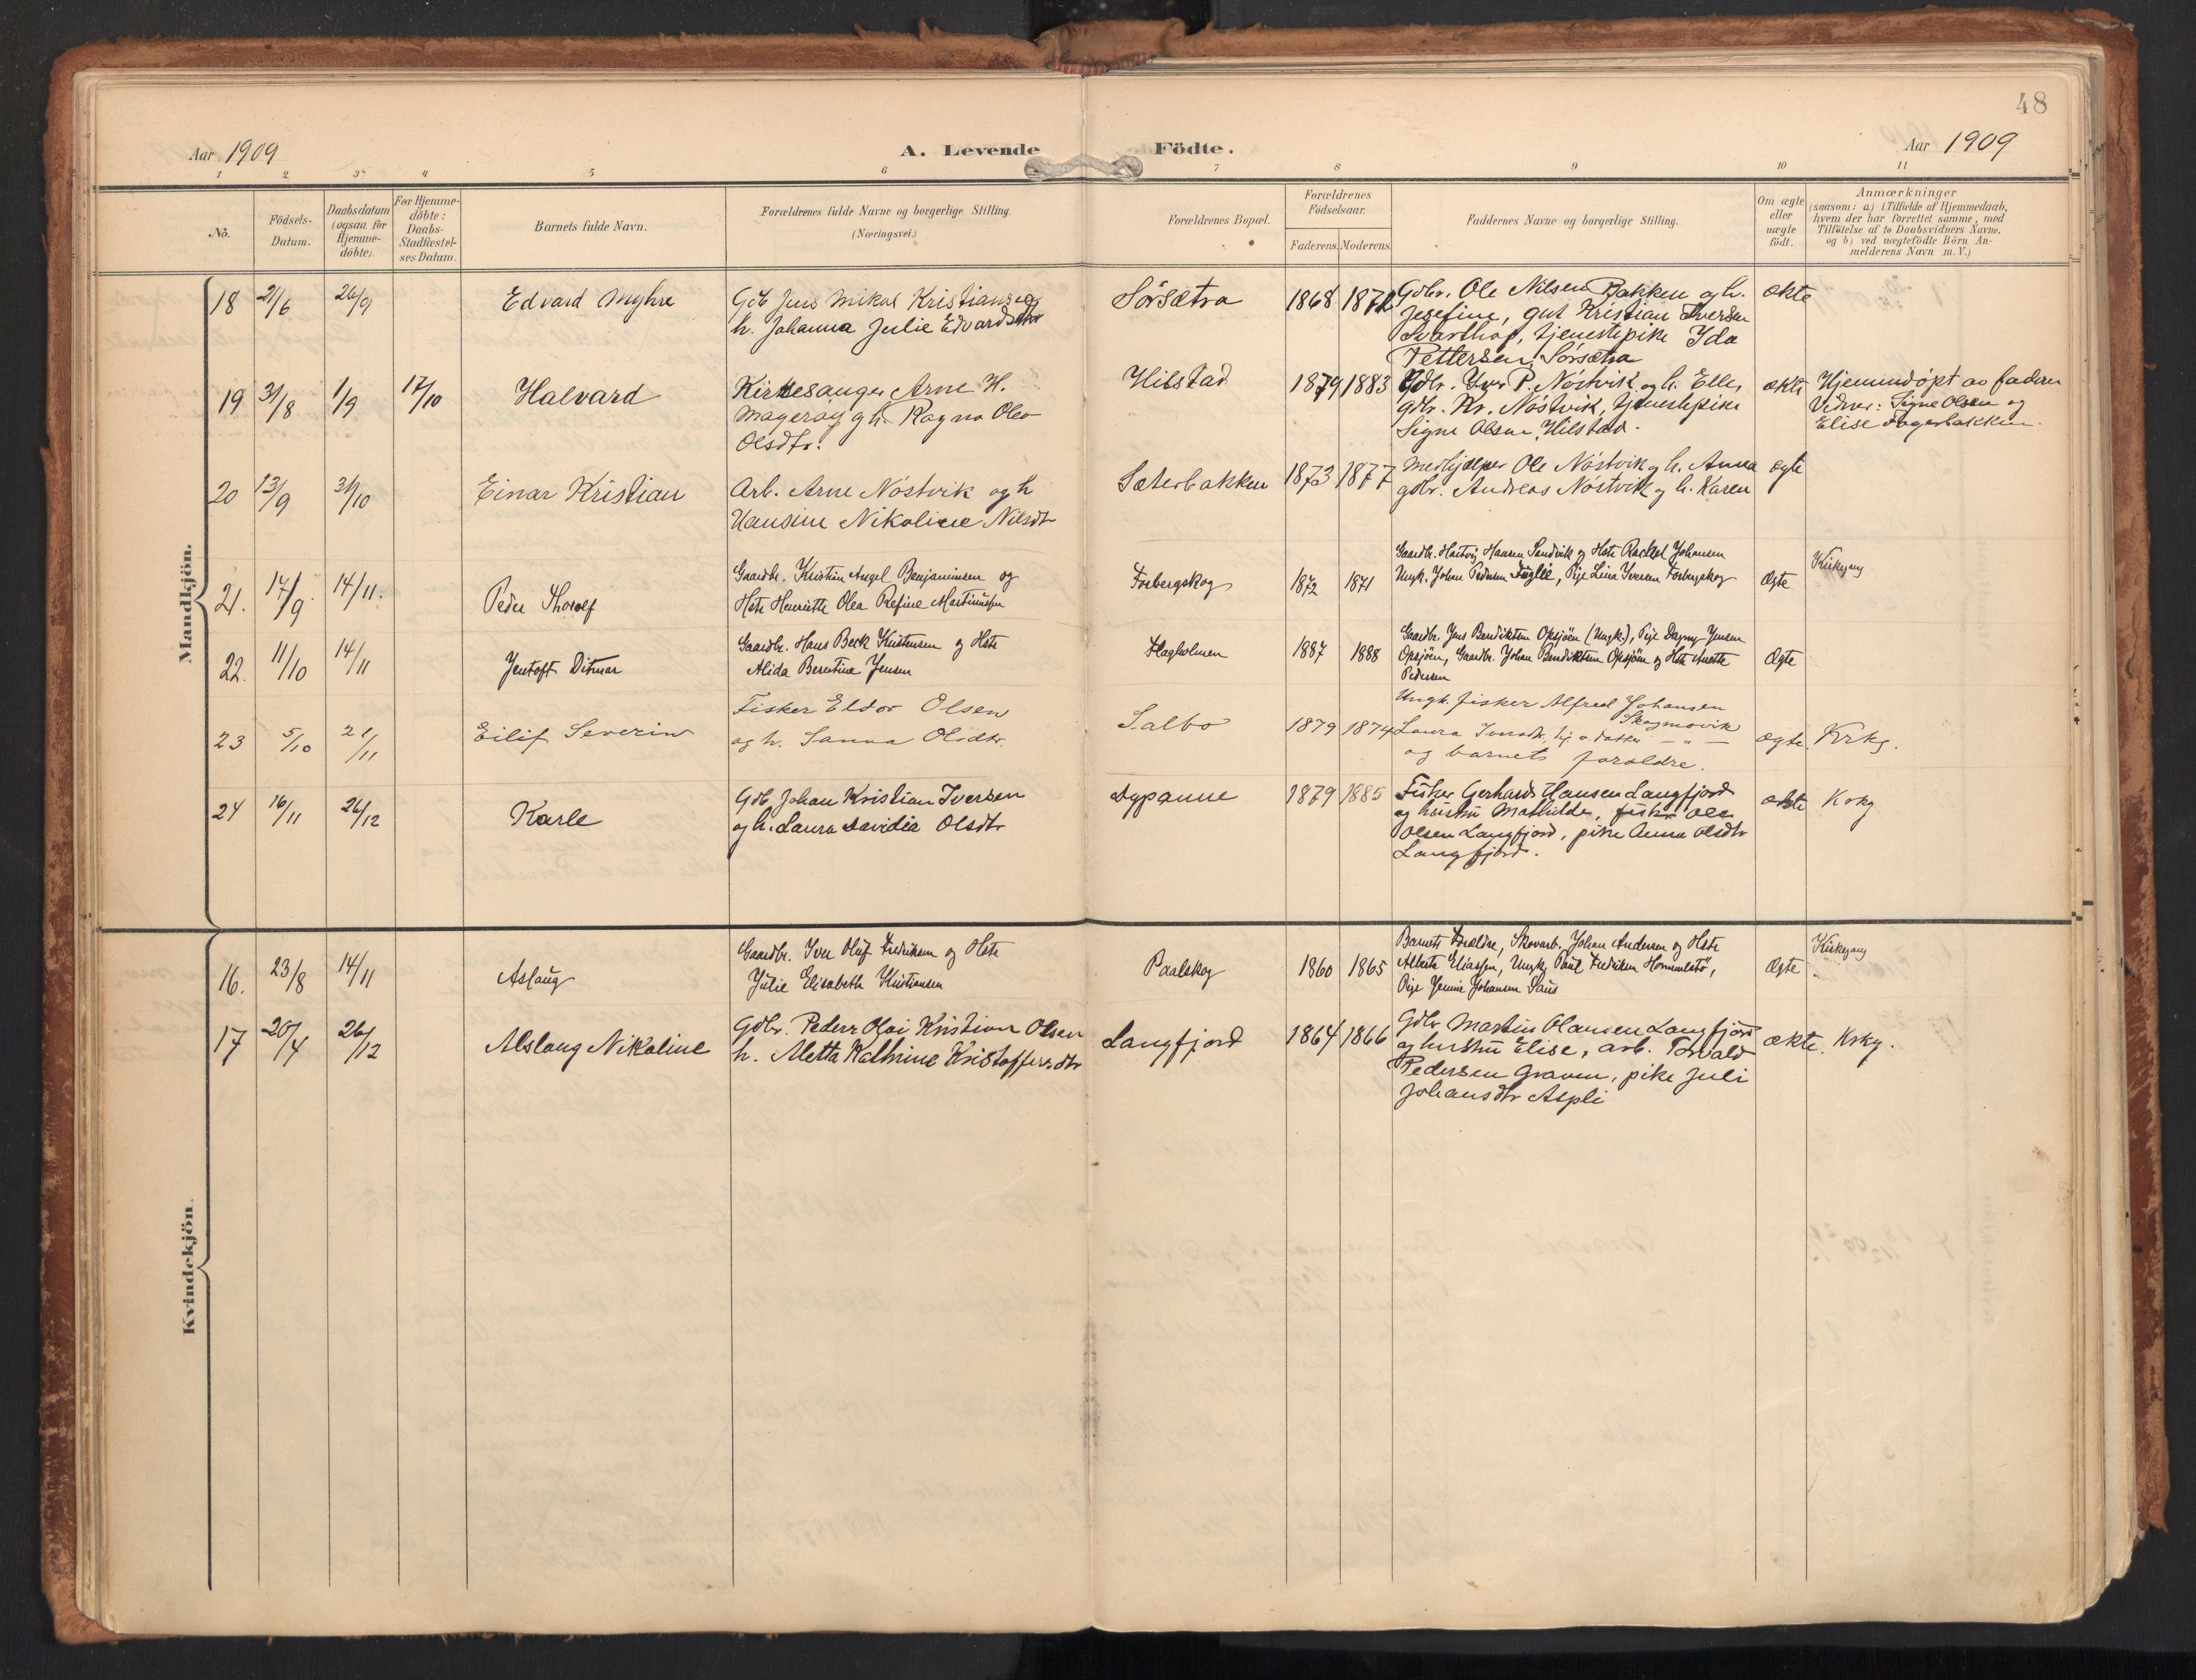 48
Aar 1909
A. Levende
Födte.
Aar 1909
1 2 3 4 5 6 7 8 9 10 11
No.
Födsels-
Datum.
Daabsdatum
(ogsaa for
Hjemme-
döbte).
For Hjemme-
döbte:
Daabs-
Stadfæstel-
ses Datum.
Barnets fulde Navn.
Forældrenes fulde Navne og borgerlige Stilling.
(Næringsvei.)
Forældrenes Bopæl.
Forældrenes
Födselsaar.
Faderens.
Moderens.
Faddernes Navne og borgerlige Stilling.
Om ægte
eller
uægte
födt.
Anmærkninger
(saasom: a) i Tilfælde af Hjemmedaab,
hvem der har forrettet samme, med
Tilföielse af to Daabsvidners Navne,
og b) ved uægtefödte Börn An-
melderens Navn m. V.)
Mandkjön.
18 21/6 26/9
Edvard Myhre
Gdb. Jens Mikal Kristiansen og
h. Johanna Julie Edvardsdtr
Sörsætra
1868
Gdbr. Ole Nilsen Bakken og h.
Josefine, gut Kristian Iversen
Svarthop, tjenestepike Ida
Pettersen, Sörsætra
ekte
19 31/8 1/9 17/10
Halvard
Kirkesanger Arne H.
Mageröy og h. Ragna Olea
Olsdtr.
Hilstad
1879 1883
Gdbr. Iver P. Nöstvik og h. Ellen
gdbr. Kr. Nöstvik, tjenestepike
Signe Olsen, Hilstad.
ekte
Hjemmedöpt av faderen
Vidner: Signe Olsen og
Elise Fagerbakken.
20 13/9 31/10
Einar Kristian
Arb. Arne Nöstvik og h
Hansine Nikoline Nilsdtr
Sæterbakken
1873 1877
Medhjælper Ole Nöstvik og h. Anna
gdbr. Andreas Nöstvik og h. Karen
ægte
21. 17/9. 14/11.
Peder Thorolf
Gaardbr. Kristian Angel Benjaminsen og
Hstr Henriette Olea Refine Martinussen
Forbergskog
1872 1871
Gaardbr. Hartvig Hansen Sandvik og Hstr Rachel Johansen
Ungk. Johan Pedersen Fuglli, Pige Lina Iversen Forbergskog
Ægte
Kirkegang
22. 11/10 14/11
Jentoft Ditmar
Gaardbr. Hans Beck Kristensen og Hstr
Alida Berntine Jensen
Flagholmen
1887 1888
Gaardbr. Jens Bendiktsen Opsjöen (Ungk.), Pige Dagny Jensen
Opsjöen, Gaardbr. Johan Bendiktsen Opsjöen og Hstr Anette
Pedersen
Ægte
23 5/10 21/11
Eilif Severin
Fisker Eldor Olsen
og h. Sanna Olsdtr.
Salbo
1879 1874
Ungk. fisker Alfred Johansen
Skogmovik
Laura Iversdtr.
og barnets foreldre.
ægte.
Krkg.
24 16/11 26/12
Karle
Gdb. Johan Kristian Iversen
og h. Laura Davidia Olsdtr
Dypanne
1879 1885
Fisker Gerhard Hansen Langfjord
og hustru Mathilde, fisker Ole
Olsen Langfjord, pike Anna Olsdtr
Langfjord.
ekte
Krkg
Kvindekjön.
16. 23/8 14/11
Aslaug
Gaardbr. Iver Oluf Fredriksen og Hstr
Julie Elisabeth Kristiansen
Paalskog
1860 1865
Barnets Forældre, Skovarb. Johan Andersen og Hstr
Alberte Eliassen, Ungk. Paul Fredriksen Hommelstö,
Pige Jennie Johansen Saus
Ægte
Kirkegang
17 20/4 26/12
Alslaug Nikoline
Gdbr. Peder Olai Kristian Olsen
h. Aletta Kathrine Kristoffersdtr
Langfjord
1864 1866
Gdbr Martin Olausen Langfjord
og hustru Elise, arb. Torvald
Pedersen Graven, pike Juli
Johansdtr Aspli
ekte.
Krkg.